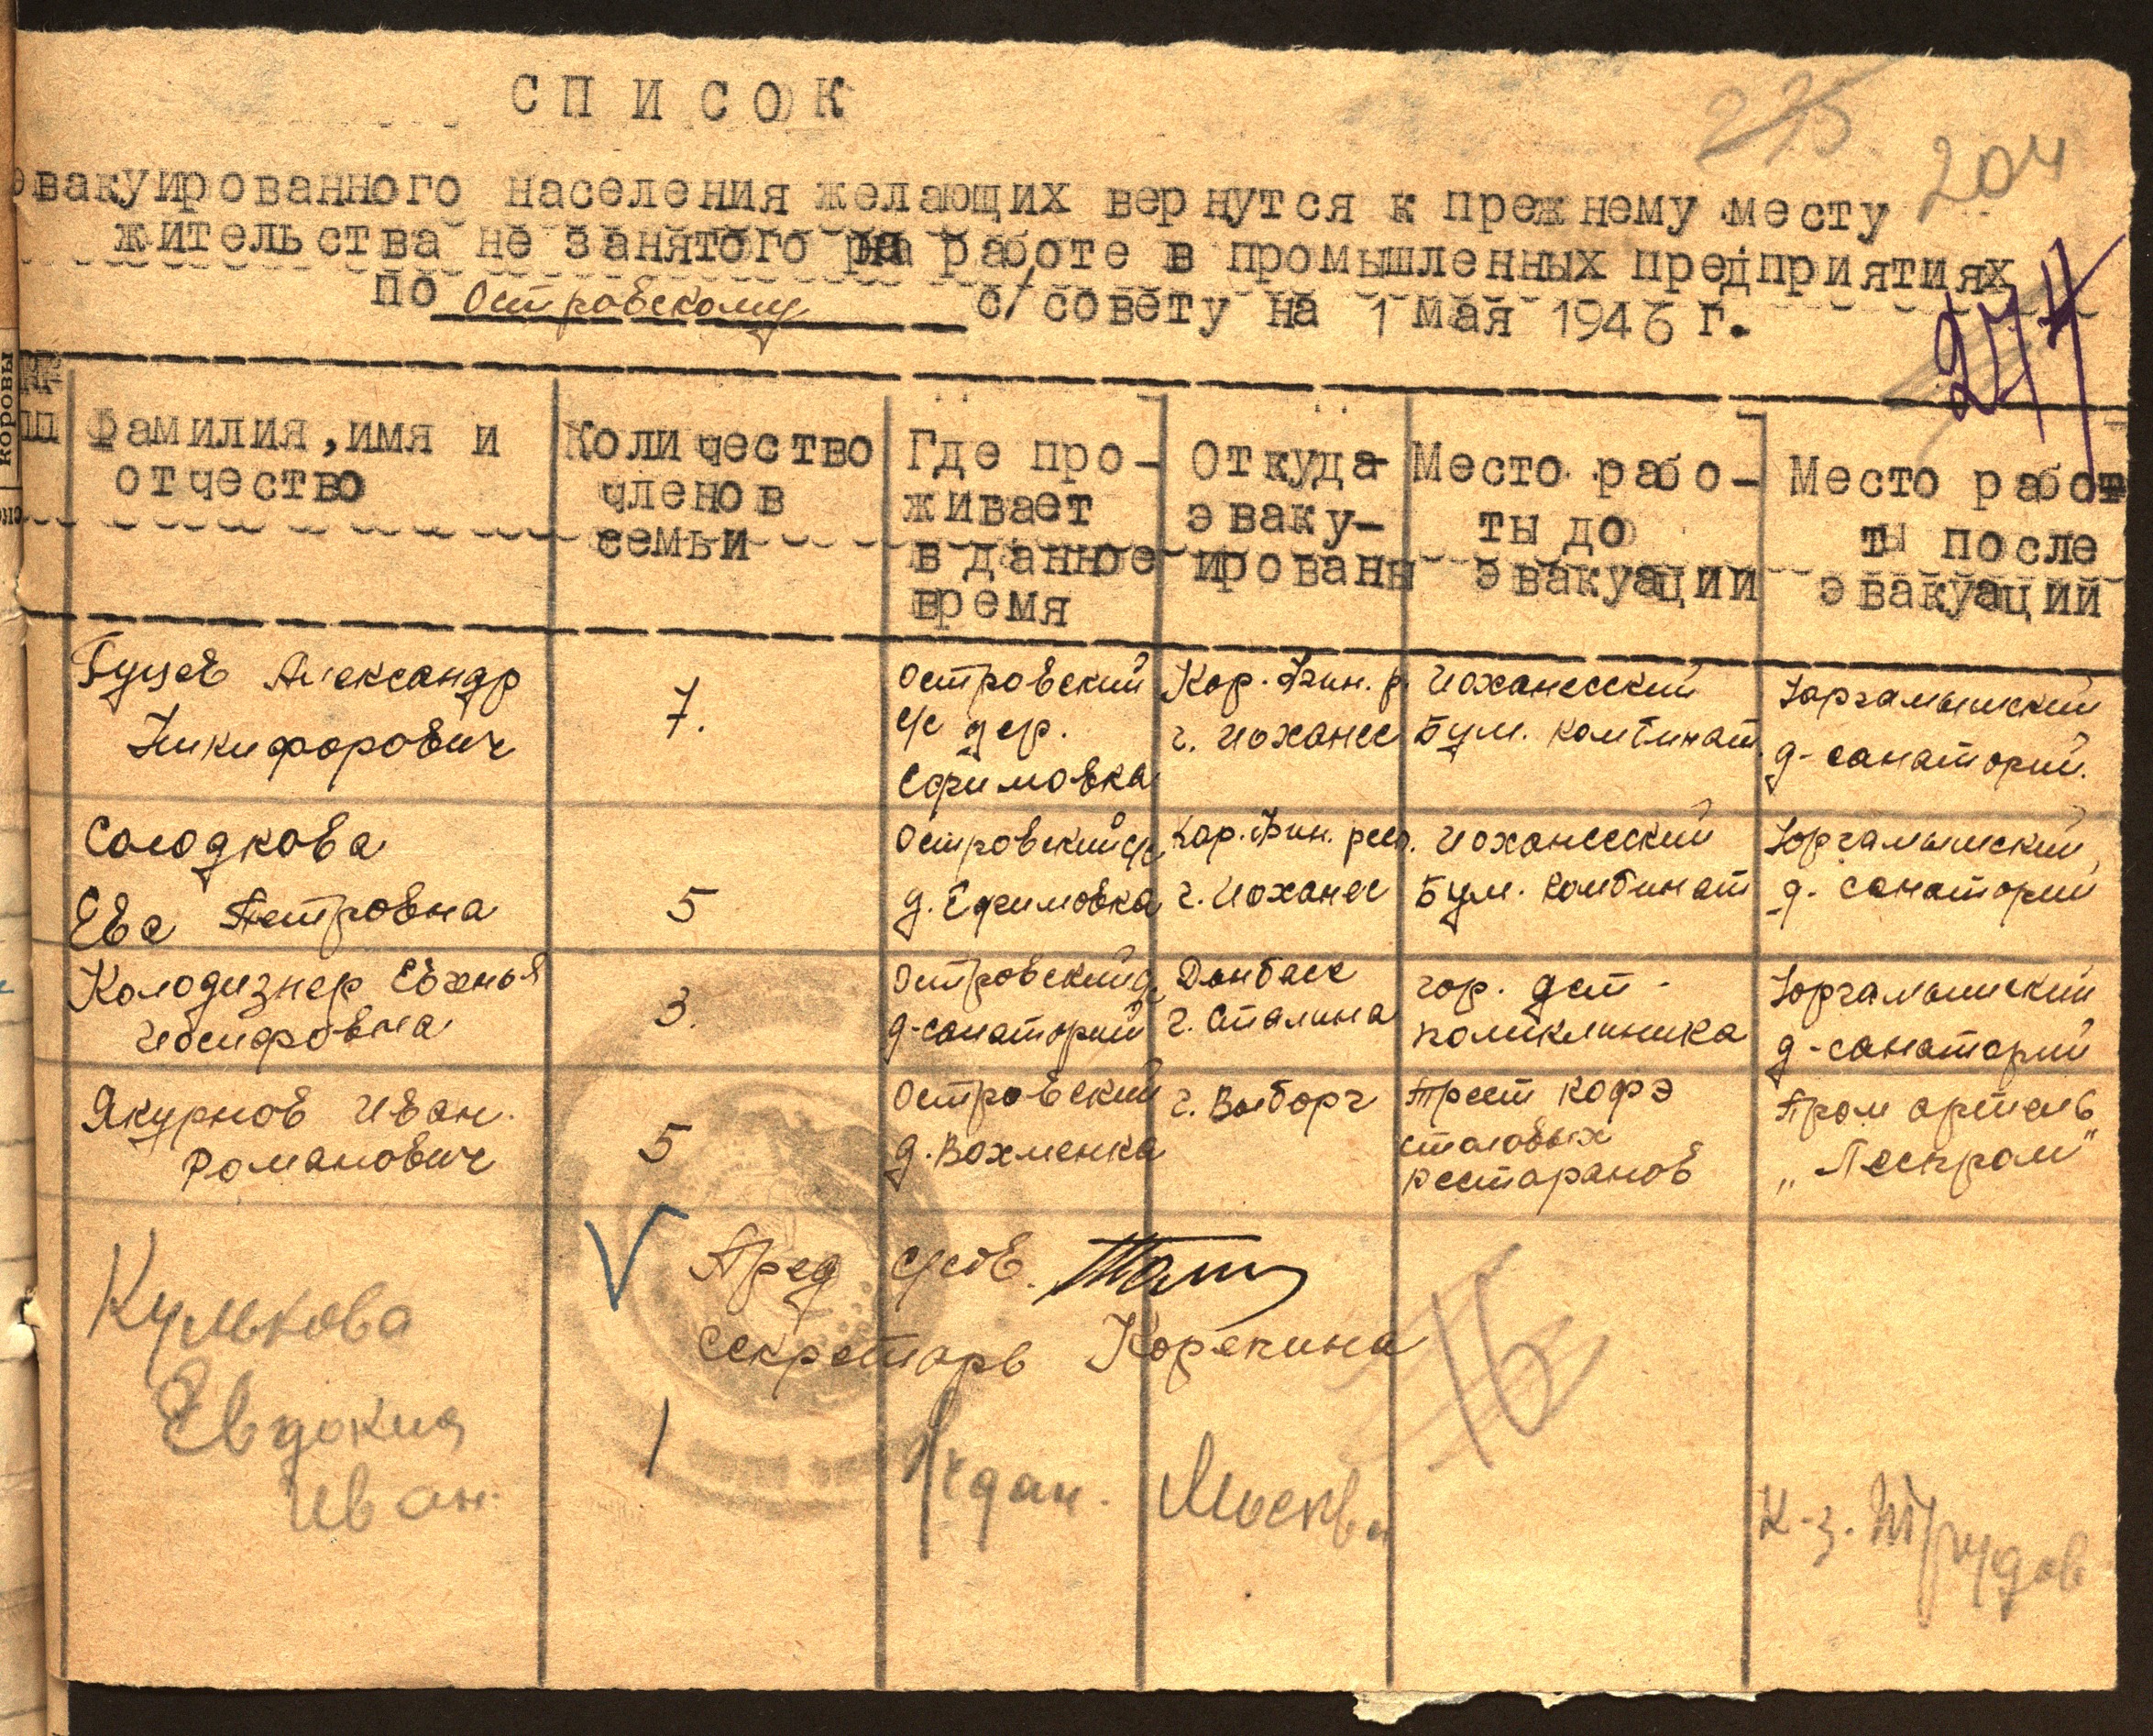 СПИСОК
275
204
эвакуированного населения желающих вернутся к прежнему месту
жительства не занятого на работе в промышленных предприятиях
по Островскому с/совету на 1 мая 1946 г.
277
коровы
Фамилия, имя и
отчество
Количество
членов
семьи
Где про-
живает
в данное
время
Откуда
эваку-
ированы
Место рабо-
ты до
эвакуации
Место работ
ты после
эвакуаций
Гущев Александр
Никифорович
7.
Островский
с/с дер.
Ефимовка
Кар. Фин. р.
г. Иоханес
Иоханесский
Бум. комбинат
Юргамышский
д-санаторий.
Солодкова
Ева Петровна
5
Островский с/с
д. Ефимовка
Кар. Фин. респ.
г. Иоханес
Иоханесский
Бум. комбинат
Юргамышский
д. санаторий
Колодизнер
Иосифовна
3.
Островский с/с
д-санаторий
Донбасс
г. Сталина
гор. дет.
поликлиника
Юргамышский
д-санаторий
Якурнов Иван.
Романович
5
Островский
д. Вохменка
г. Выборг
Трест кофэ
столовых
ресторанов
Пром артель
„Леспром"
Пред с/сов.
Секретарь Корепина
16
Кулькова
Евдокия
Иван.
1
Москва
К-з. Трудов